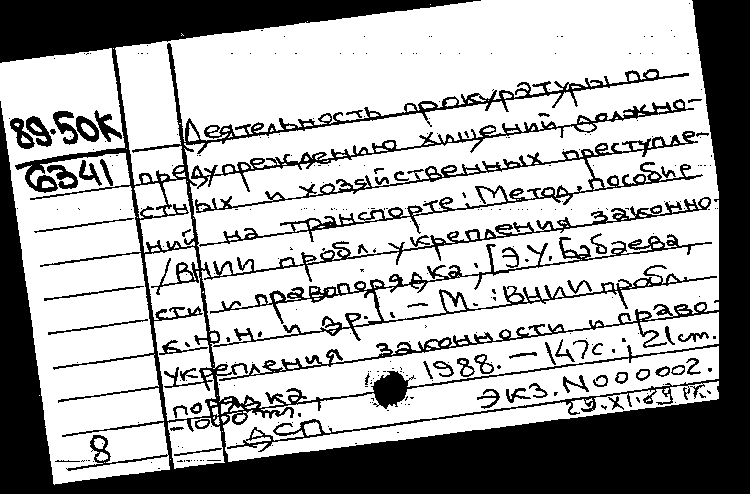 89-50К
6341
Деятельность прокуратуры по
предупреждению хищений, должно-
стных и хозяйственных преступле-
ний на транспорте: Метод. пособие
/ВНИИ пробл. укрепления законно-
сти и правопорядка; [Э.У. Бабаева,
к.ю.н. и др.]. – М.: ВНИИ пробл.
укрепления законности и право-
порядка, 1988. – 147с.; 21см.
-1000 экз. N000002.
ДСП. 29.XI.89
8